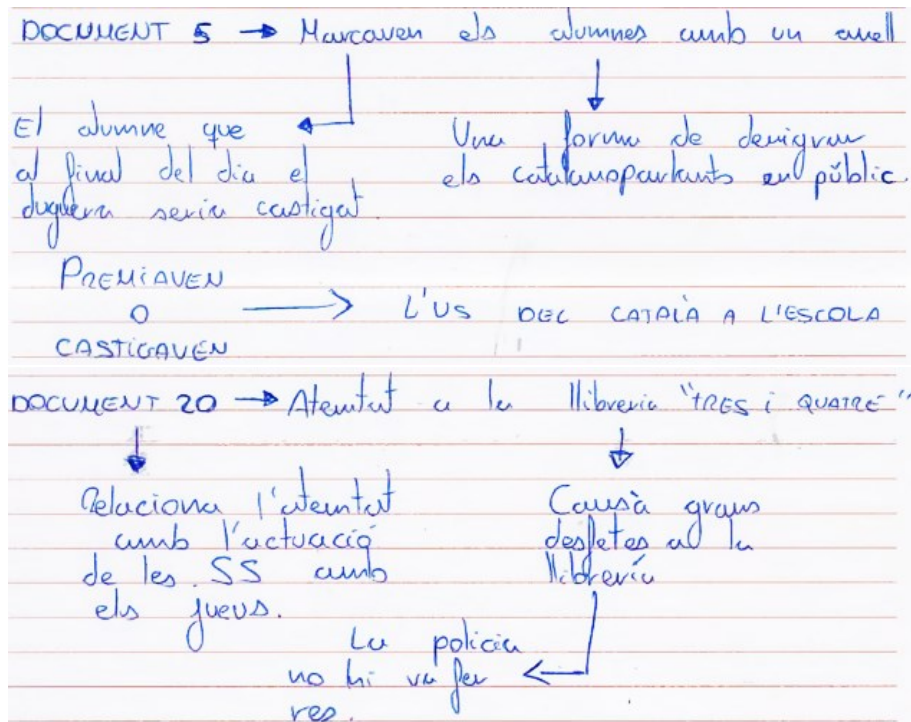 DOCUMENT 5 → Marcaven els alumnes amb un anell
El alumne que
al final del dia el
duguera seria castigat.
Una forma de denigrar
els catalanoparlants en públic.
PREMIAVEN
O
CASTIGAVEN
→ L'US DEL CATALÀ A L'ESCOLA
DOCUMENT 20 → Atemtat a la llibreria "TRES i QUATRE"
Relaciona l'atemtat
amb l'actuació
de les SS amb
els jueus.
Causà grans
desfetes a la
llibreria
La policia
no hi va fer
res.